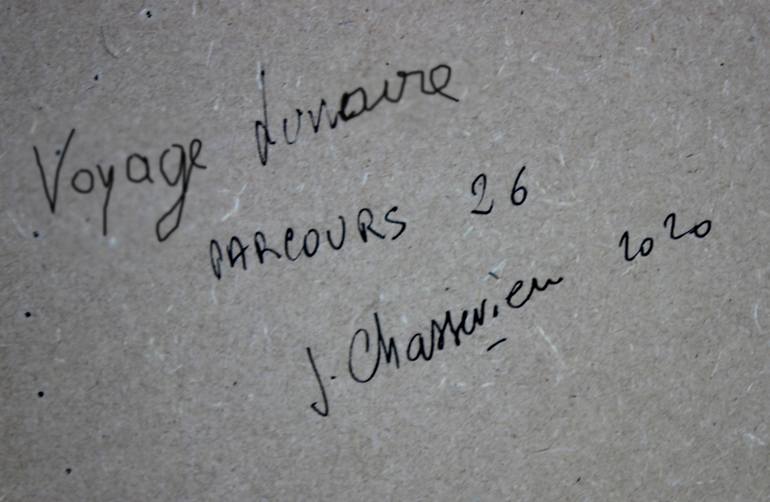 Voyage lunaire
PARCOURS 26
J. Chasserieu 2020